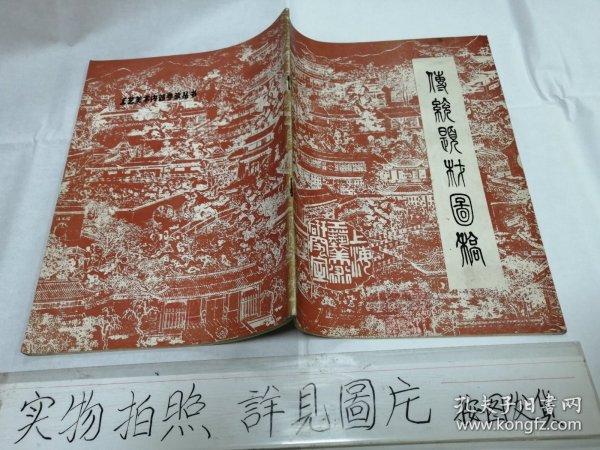 傳統題材圖稿
上海
工藝美術
研究室
实物拍照 詳見圖片 按图发货
孔夫子旧书网
www.kongfz.com